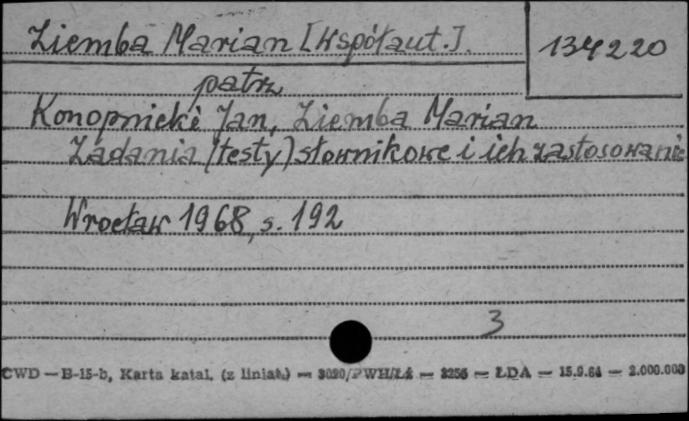 Ziemba Marian [współaut.].
134220
patrz
Konopnicki Jan, Ziemba Marian
Zadania (testy) słownikowe i ich zastosowanie
Wrocław 1968, s. 192
3
CWD — B-15-b, Karta katal. (z liniat.) — 3020/PWH/Łź — 3256 — ŁDA — 15.9.64 — 2.000.000